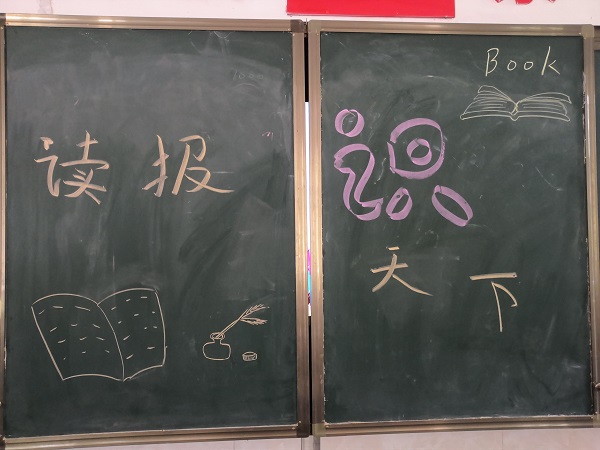 读报
Book
识
天下